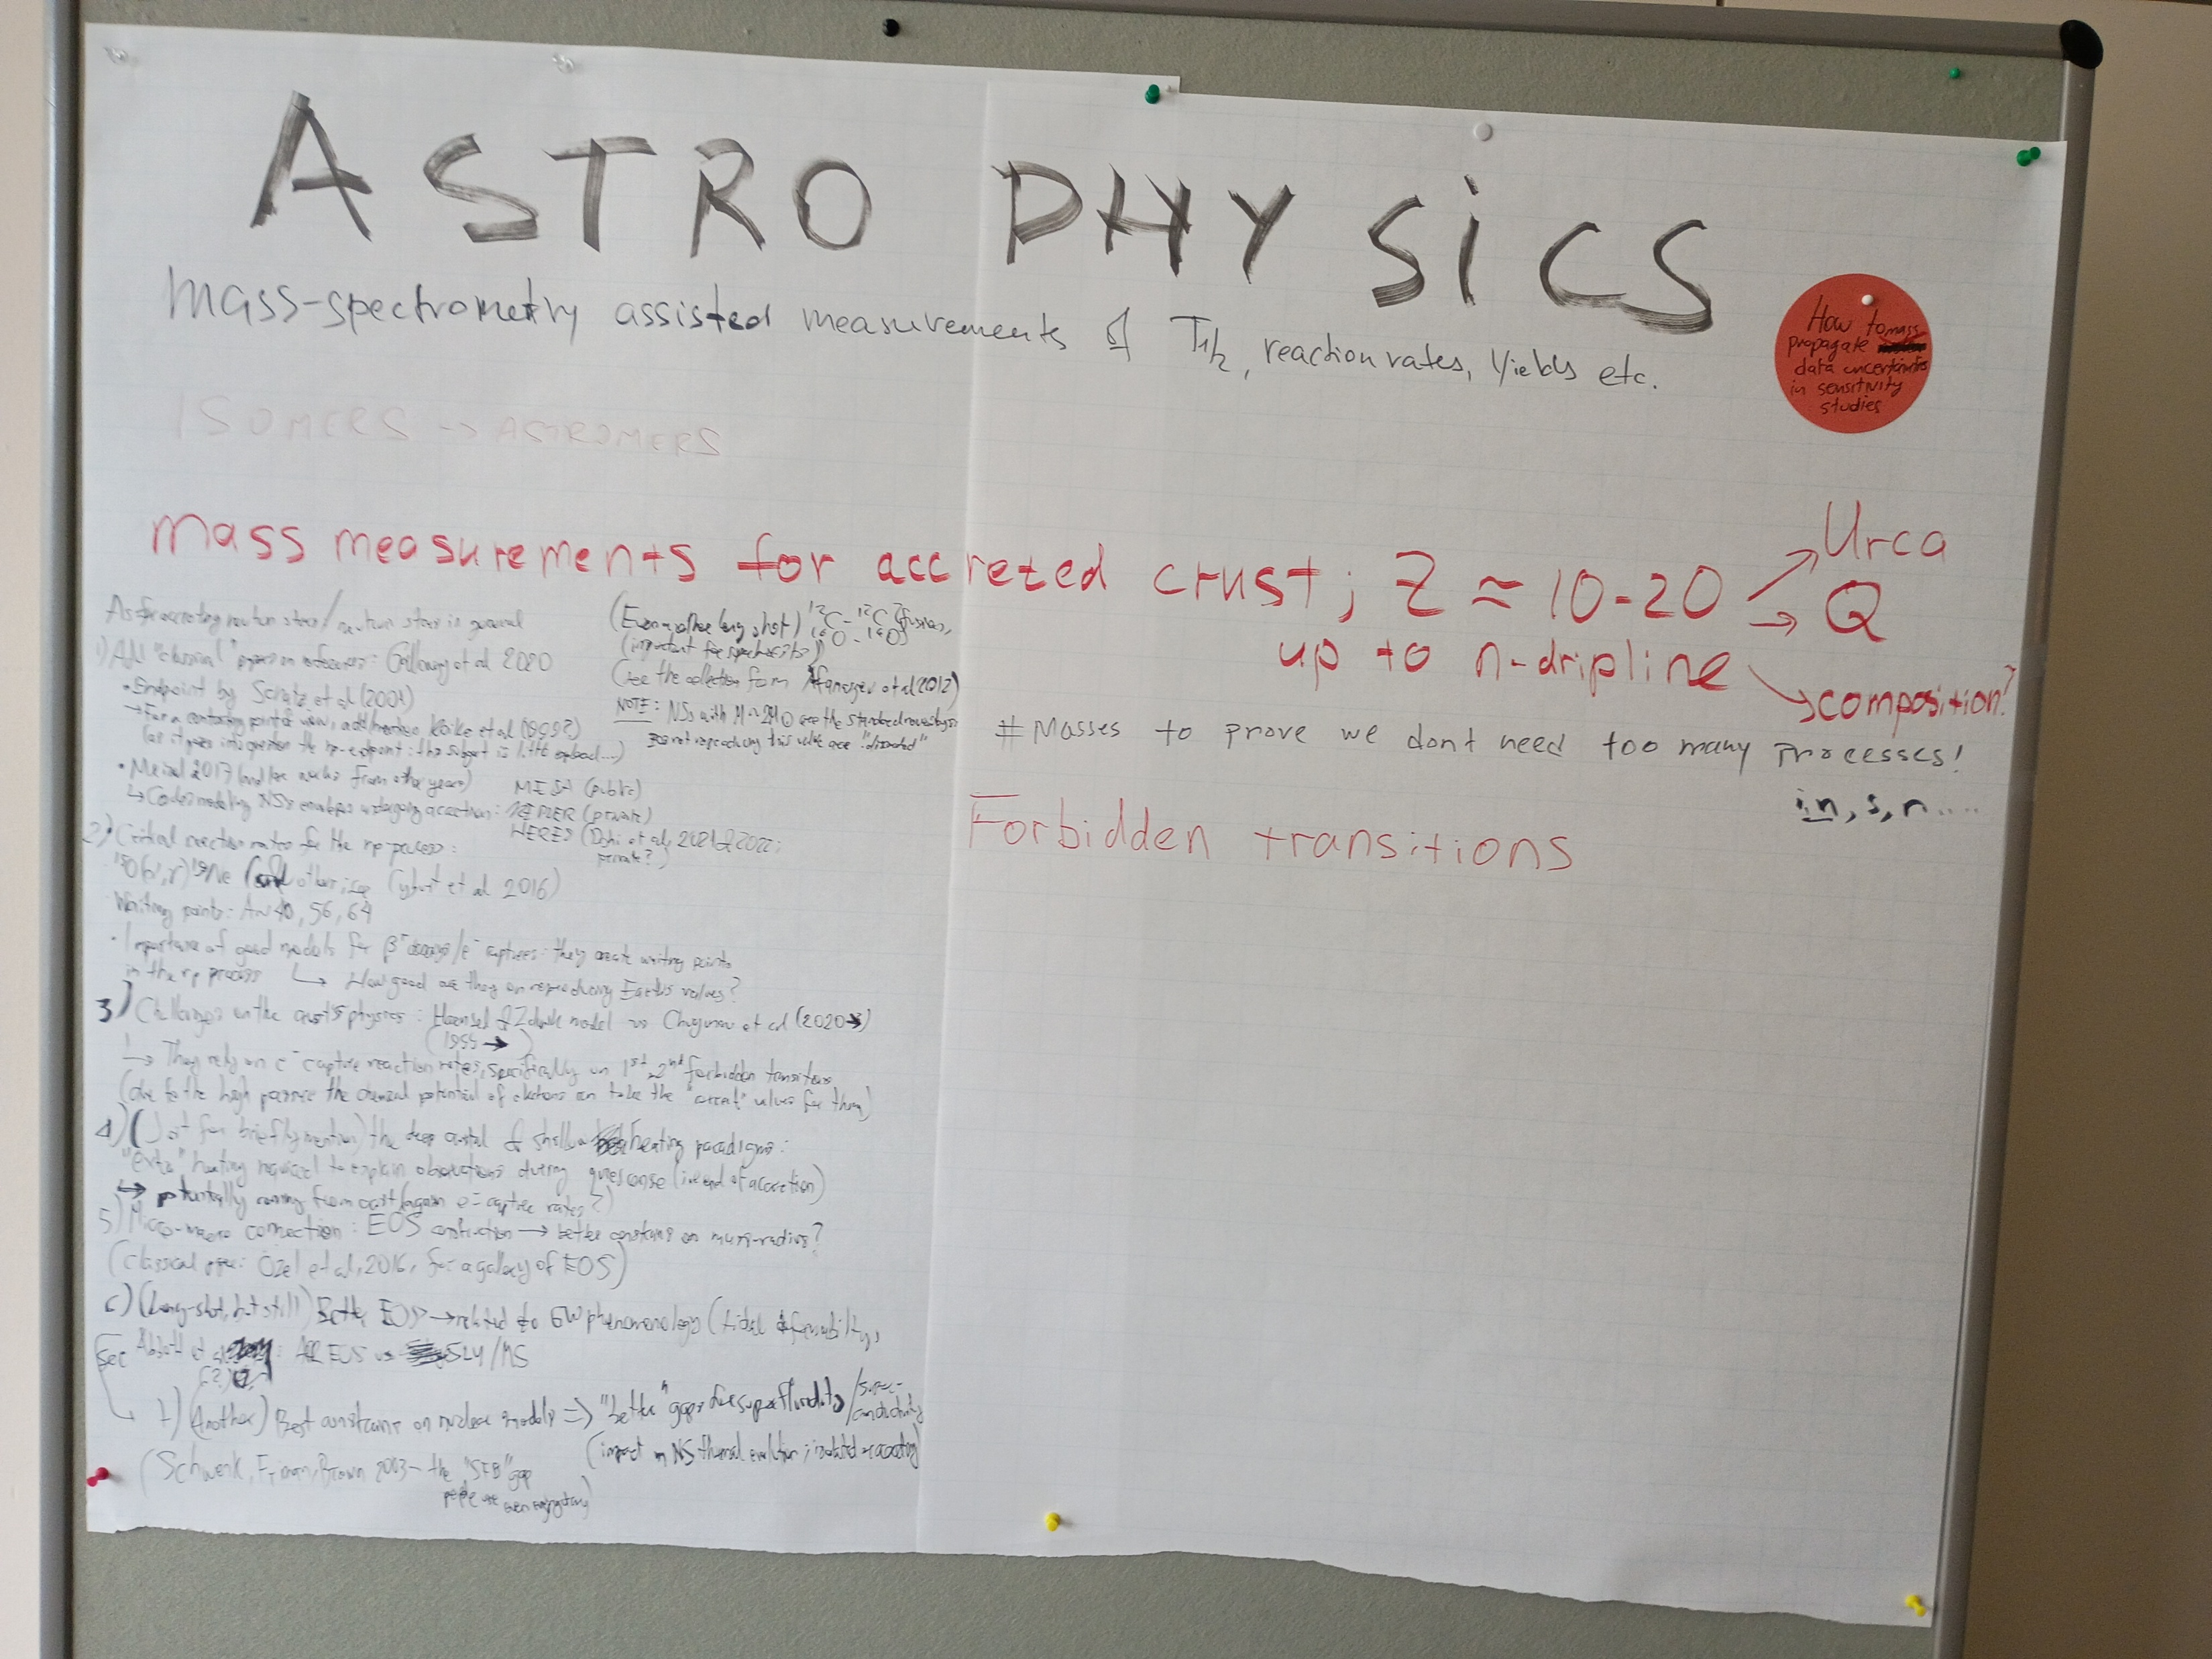 ASTRO PHYSiCS
mass-spectrometry assisted measurements of T1/2, reaction rates, Yields etc.
How to mass
propagate
data uncertainties
in sensitivity
studies
ISOMERS -> ASTROMERS
mass measurements for accreted crust; Z ≈ 10-20
Urca
Q
up to n-dripline
composition?
# Masses to prove we dont need too many processes!
in, s, r ....
Forbidden transitions
As for accreting neutron stars/neutron stars in general
1) All "classical" on references: Galloway et al 2020
• Endpoint by Schatz et al (2001)
→ For a contrasting point of view, add/mention Koike et al
(as it goes into question the rp-endpoint: the subject is little explored...)
• Meisel 2017 (and the works from other years)
↳ Codes modeling NSs envelopes undergoing accretion:
MESA (public)
KEPLER (private)
HERES (Dohi et al, 2021 & 2022;
private?)
2) Critical reaction rates for the rp-process:
other, in Cyburt et al 2016)
Waiting points: A~40, 56, 64
• Importance of good models for β+ decays/e- captures: they create waiting points
in the rp process ↳ How good are they on reproducing Earth's values?
3) Challenges on the crust's physics: Haensel & Zdunik model vs Chugunov et al (2020→)
→)
↳ They rely on e- capture reaction rates, specifically on 1st, 2nd forbidden transitions
(due to the high pressure the chemical potential of electrons can take the values for them)
4) (Just for briefly mention) the deep crustal & shallow heating paradigms:
"extra" heating required to explain observations during quiescense (in end of accretion)
↳ potentially coming from crust (again e- capture rates?)
5) Micro-macro connection: EOS construction → better constrains on mass-radius?
(classical ref.: Özel et al, 2016, for a gallery of EOS)
6) (Long-shot, but still) Better EOS → related to GW phenomenology (tidal deformability,
See Abbott et al : All EOS vs SLY/MS
7) (Another) Best constrains on nuclear models => "better" gaps for superfluidity/super-
conductivity
(impact on NS thermal evolution; isolated & accreting)
(Schwenk, Friman, Brown 2003 - the "SFB" gap
(Even another long shot) 12C-12C fusion,
16O-16O
(important for superbursts)
(see the collection from Afanasjev et al 2012)
NOTE: NSs with M~2M⊙ are the standard nowadays
EOS not reproducing this value are "discarded"